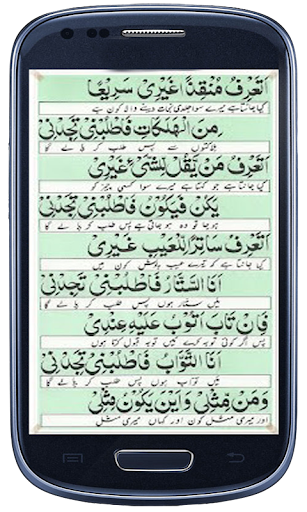 اَتَعْرِفُ مُنْقِذًا غَيْرِيْ سَرِيْعًا
کیا جانتا ہے میرے سوا جلدی نجات دینے والا کون ہے
مِنَ الْهَلَكَاتِ فَاطْلُبْنِيْ تَجِدْنِيْ
ہلاکتوں سے پس طلب کر پا لے گا
اَتَعْرِفُ مَنْ يَقُلْ لِلشَّيْءِ غَيْرِيْ
کیا جانتا ہے جو کہتا ہے میرے سوا کسی چیز کو
يَكُنْ فَيَكُوْنُ فَاطْلُبْنِيْ تَجِدْنِيْ
ہوجا تو وہ ہو جاتی ہے پس طلب کر پا لے گا
اَتَعْرِفُ سَاتِرًا لِلْعَيْبِ غَيْرِيْ
کیا جانتا ہے کہ تیرے عیب کون میں
اَنَا السَّتَّارُ فَاطْلُبْنِيْ تَجِدْنِيْ
میں ستار ہوں پس طلب کر پا لے گا
فَاِنْ تَابَ اَتُوْبُ عَلَيْهِ عِنْدِيْ
پس اگر کوئی توبہ کرے میں توبہ قبول کرتا ہوں
اَنَا التَّوَّابُ فَاطْلُبْنِيْ تَجِدْنِيْ
میں تواب ہوں پس طلب کر پا لے گا
وَمَنْ مِثْلِيْ وَاَيْنَ يَكُوْنُ مِثْلِيْ
اور میری مثل کون اور کہاں میری مثل